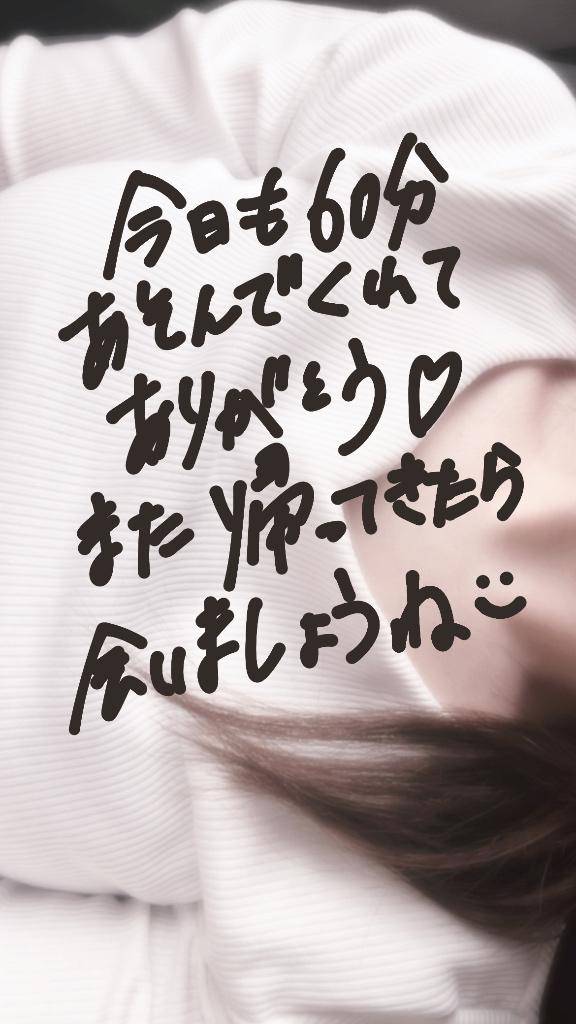 今日も60分
あそんでくれて
ありがとう♡
また帰ってきたら
会いましょうね